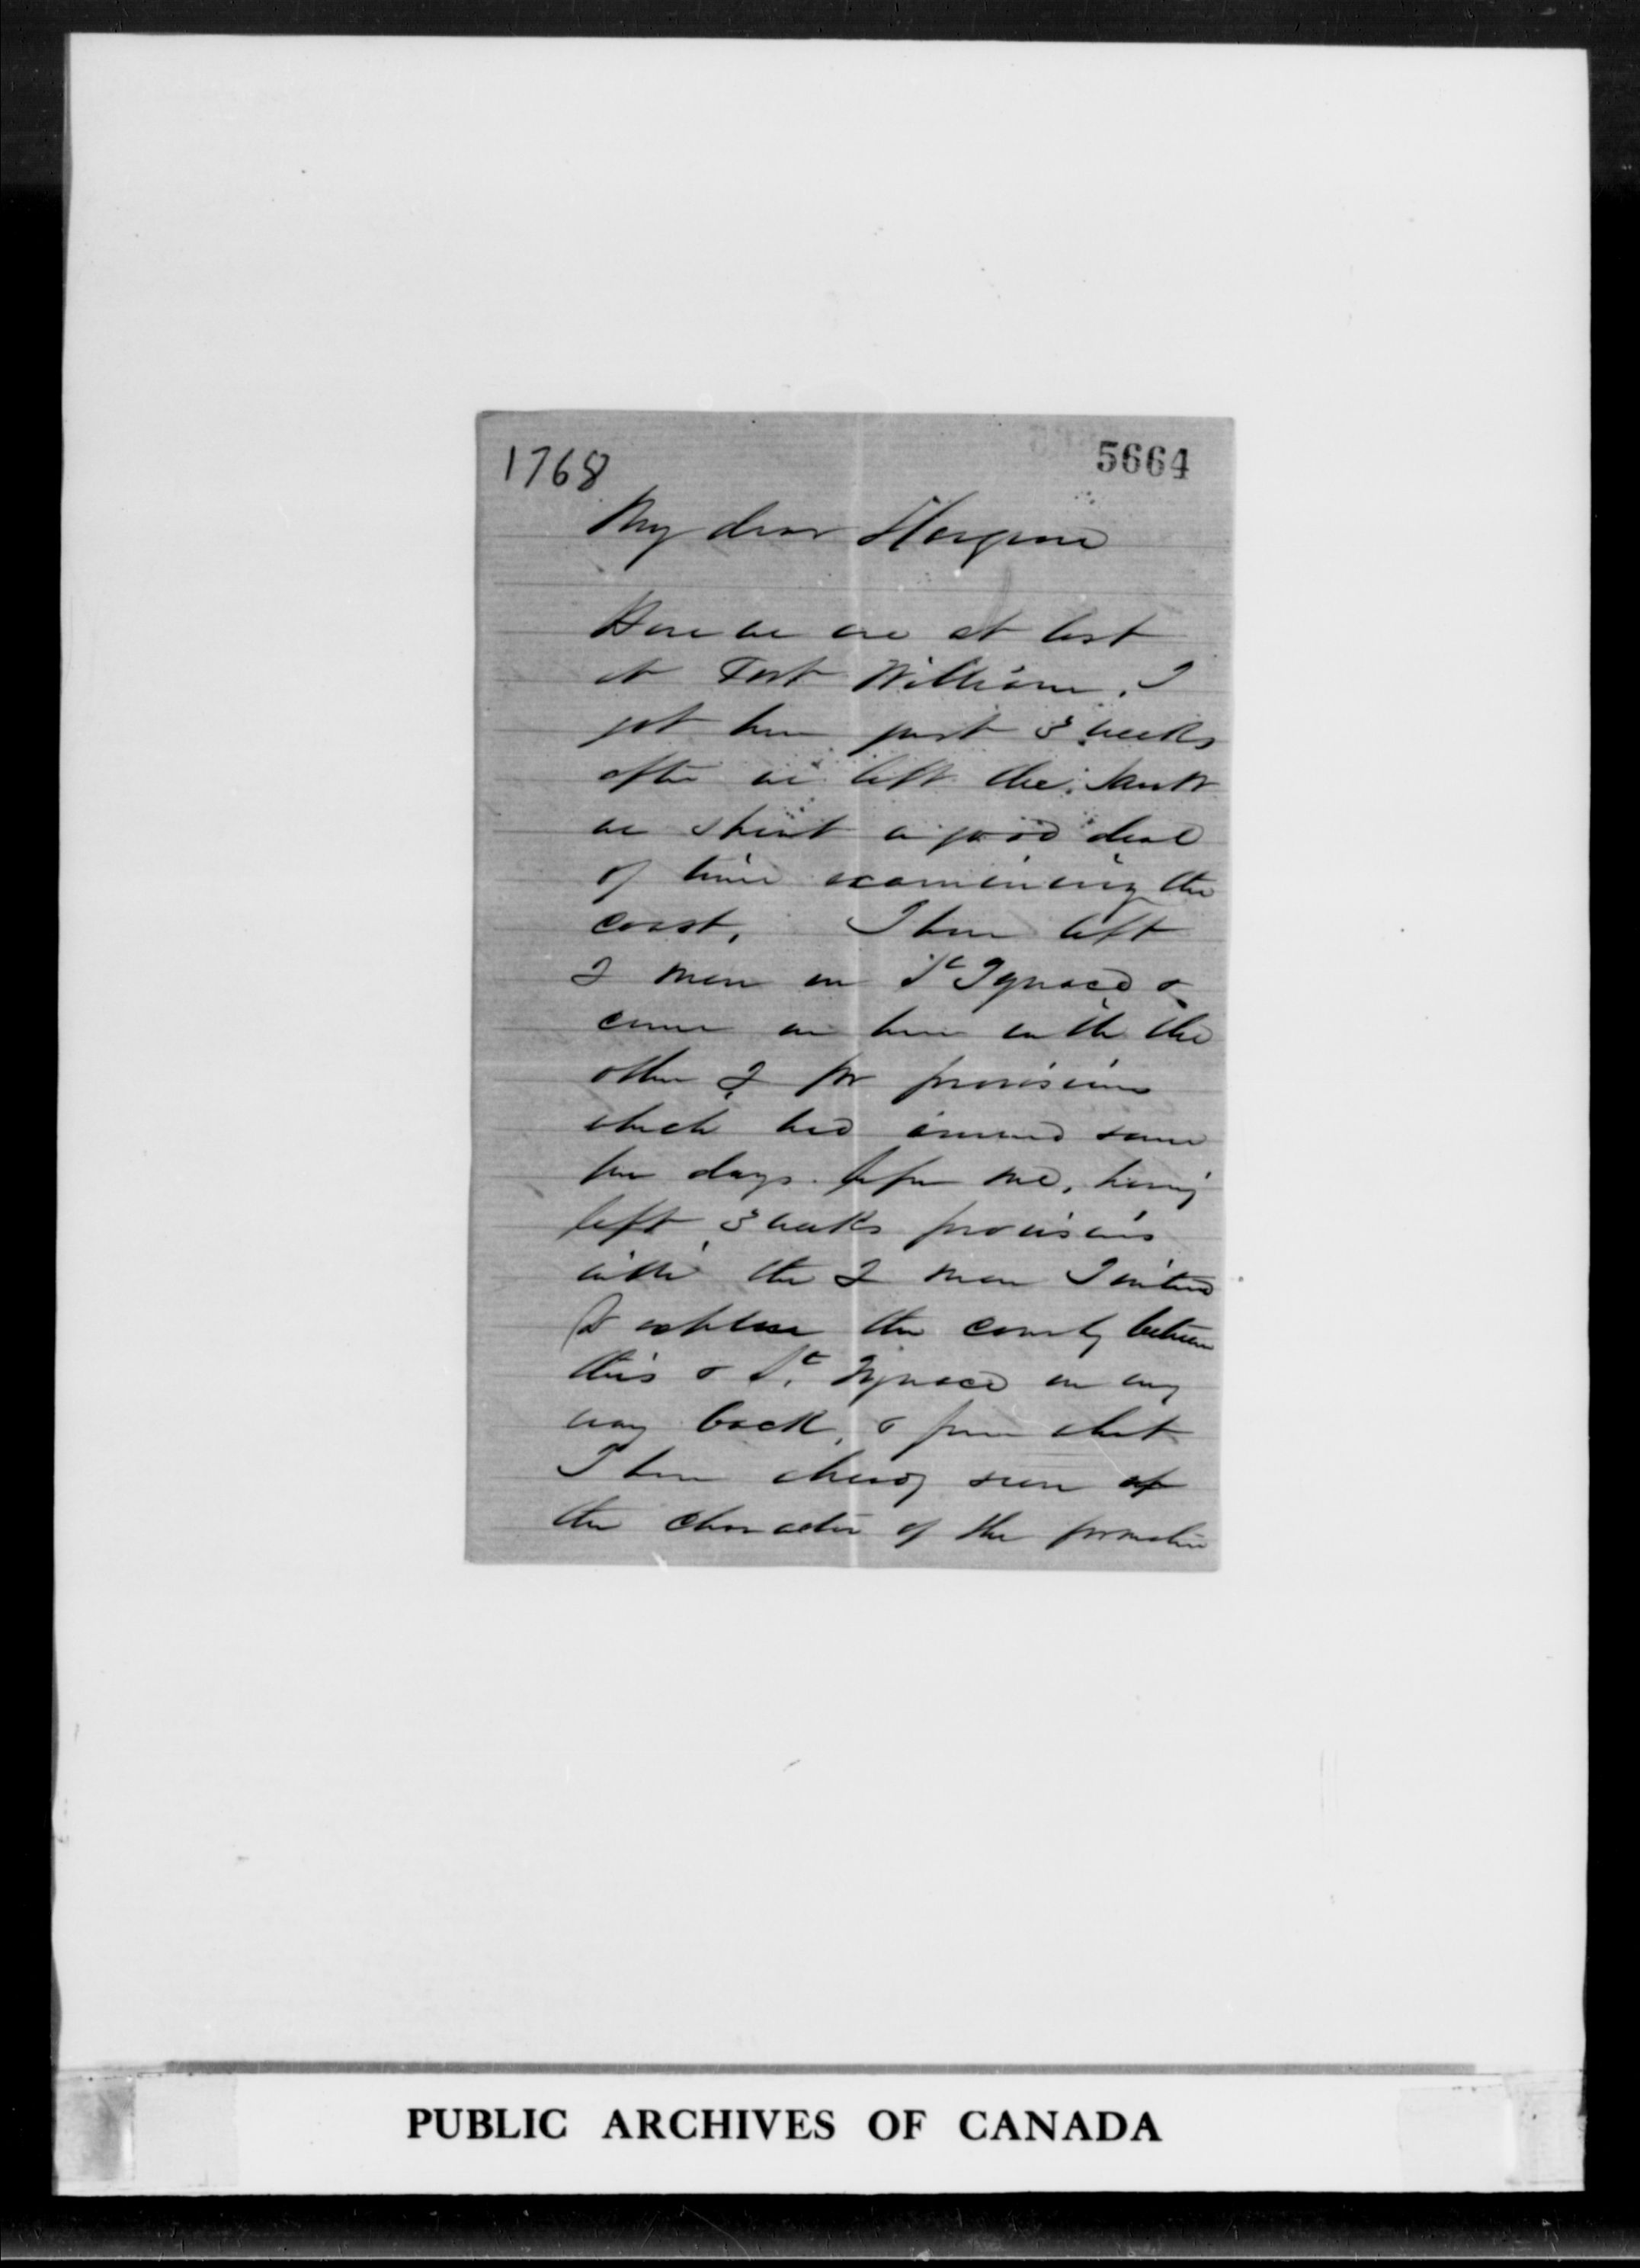 1768
5664
My dear Hargrave
Here we are at last
at Fort William. I
got here just 3 weeks
after we left the Sault
we spent a good deal
of time examining the
coast. I have left
2 men on St Ignace &
came on here with the
other 2 for provisions
which had arrived some
few days before me, having
left 3 weeks provisions
with the 2 men I intend
to explore the country between
this & St. Ignace on my
way back, & from what
I have already seen of
the character of the formation
PUBLIC ARCHIVES OF CANADA